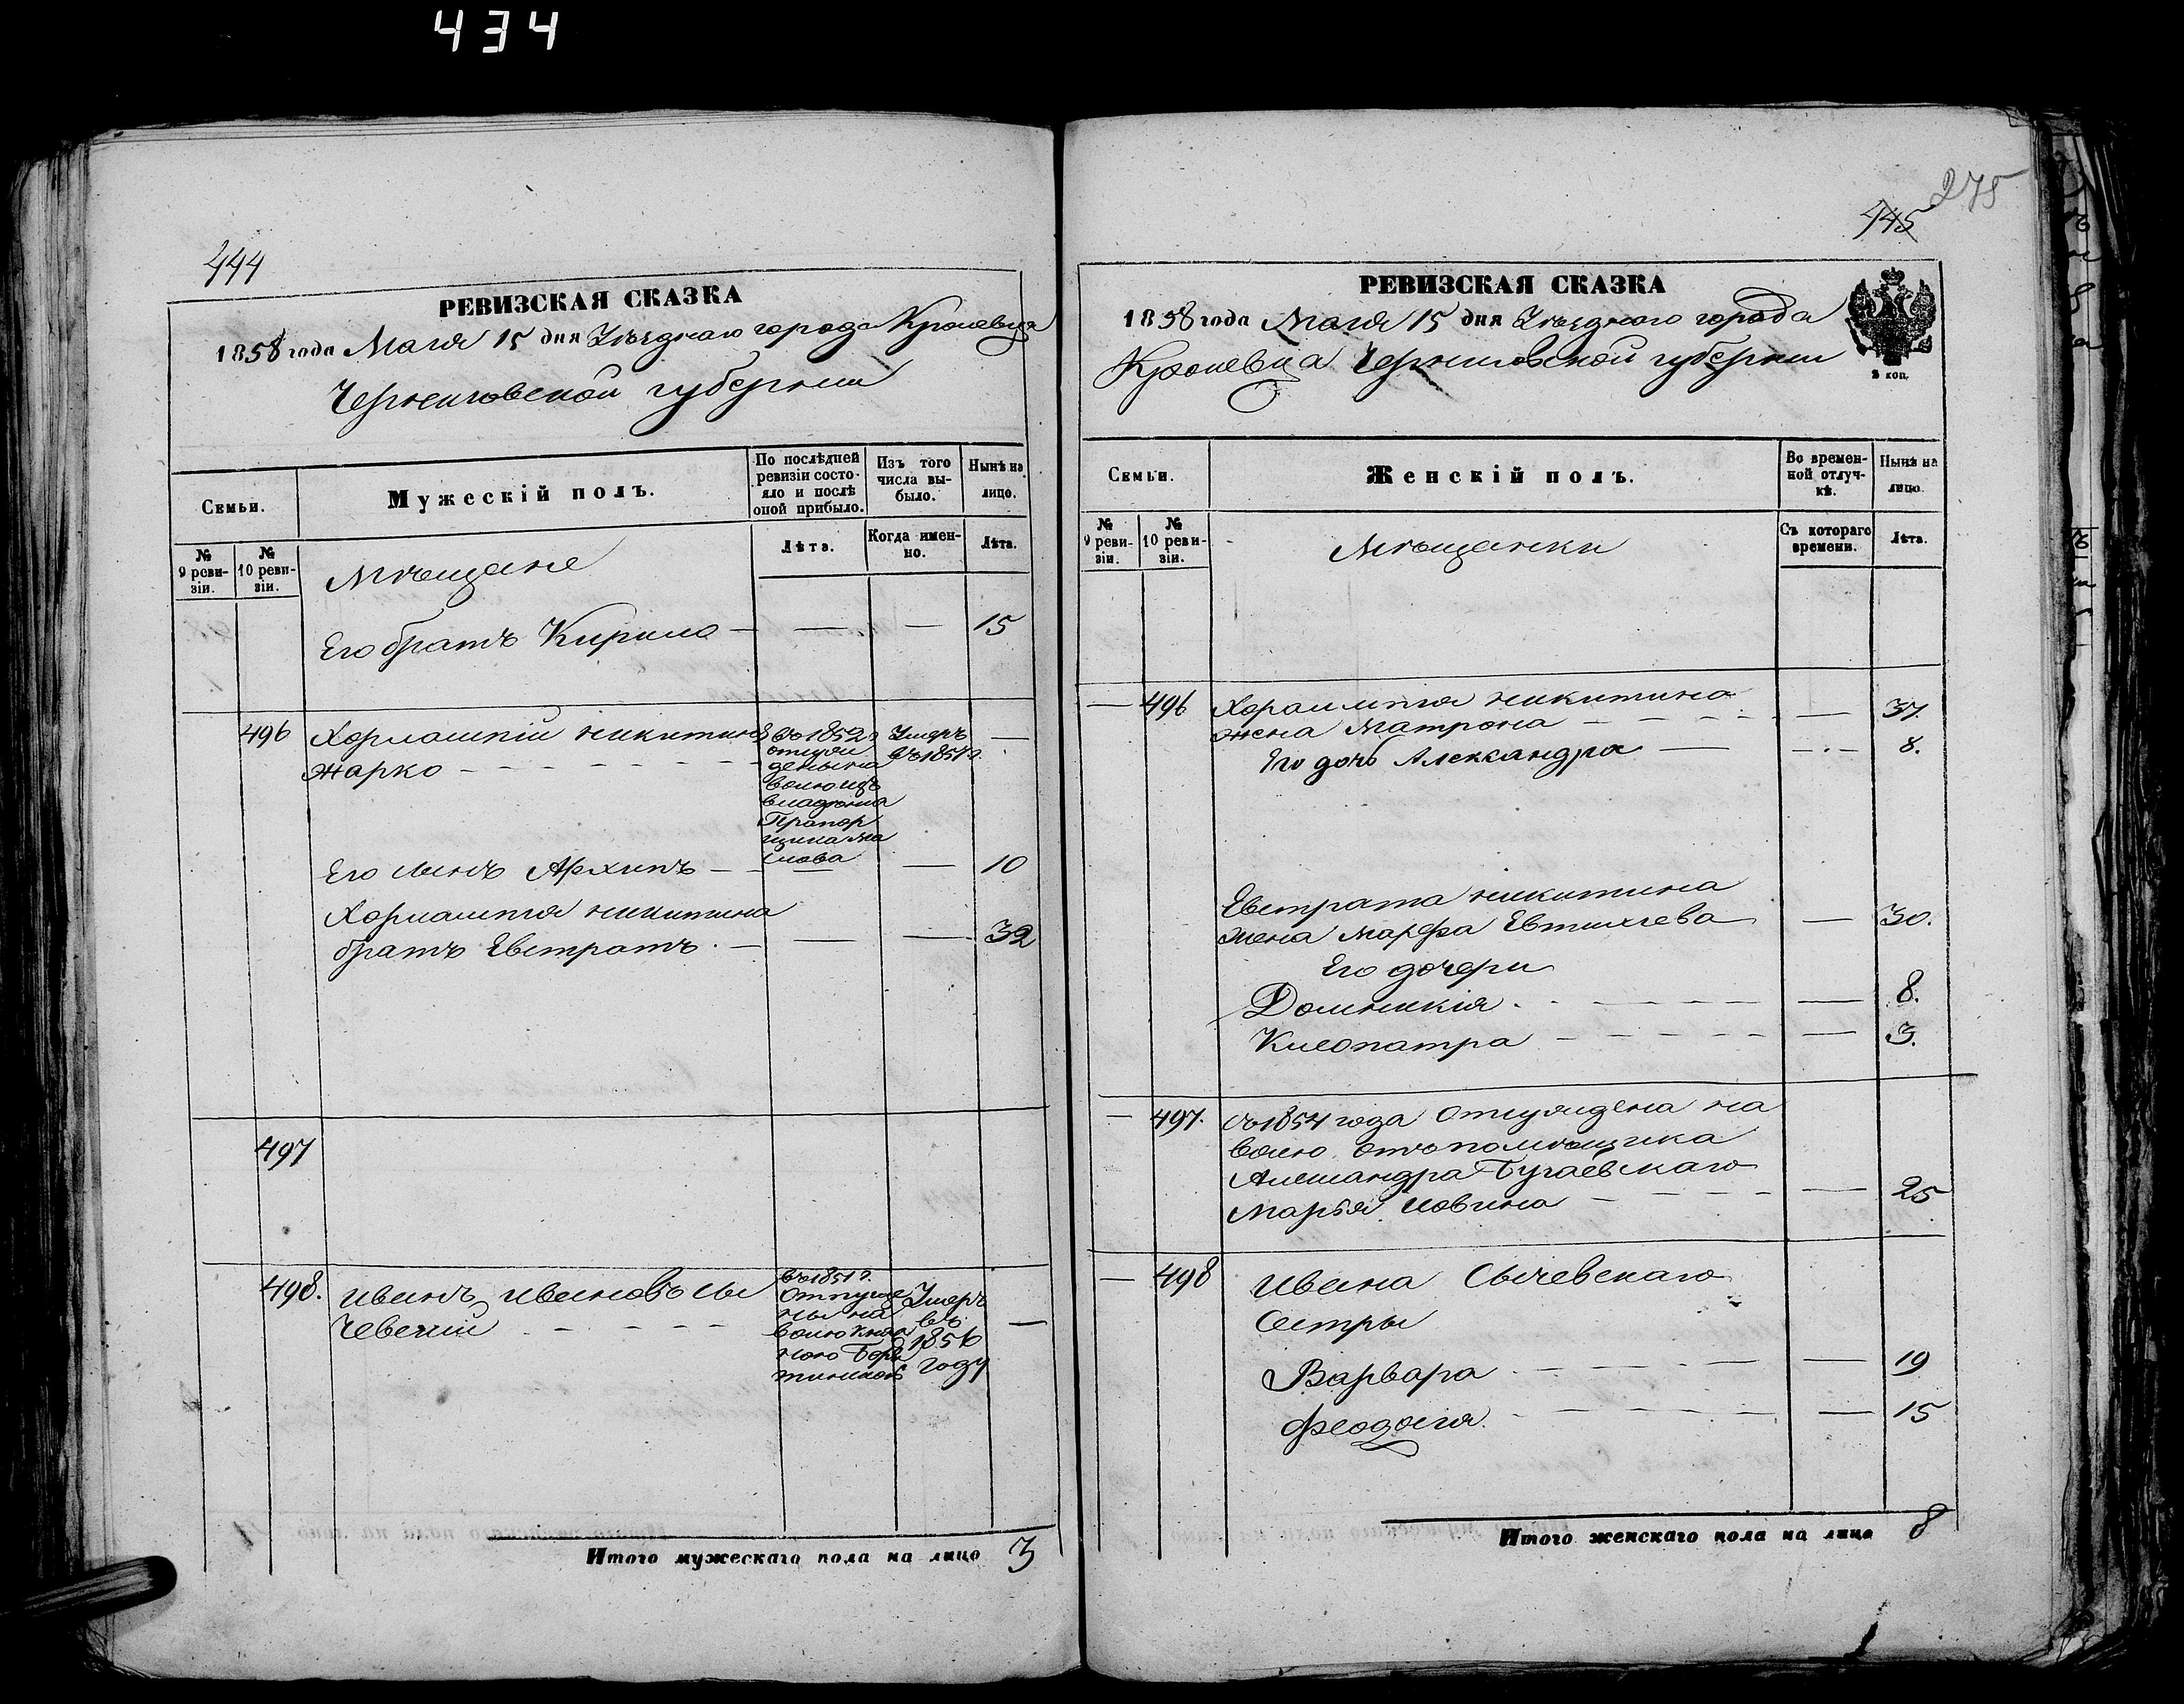 434
444
РЕВИЗСКАЯ СКАЗКА
1858 года Мая 15 дня Уѣзднаго города Кролевца
Черниговской губернии
Семьи.
Мужескій полъ.
По послѣдней ревизіи состояло и послѣ оной прибыло.
Изъ того числа выбыло.
Нынѣ на лицо.
№ 9 ревизіи.
№ 10 ревизіи.
Лѣта.
Когда именно.
Лѣта.
Мѣщане
Его братъ Кирило — — — 15
496 Харлашпій Никитинъ
Жарко
съ 1852 г.
отпущенына
волю изъ
владенія
Прапор
щика Ма
слова
Умеръ
въ 185 г.
—
Его сынъ Архипъ — — — 10
Никитина
братъ Евстратъ — — — 32
497
498. Иванъ Ивановъ Сы
чевскій
въ 1851 г.
отпуще
ны на
волю Кня
Умеръ
въ
1856
году
—
Итого мужескаго пола на лицо 3
275
445
РЕВИЗСКАЯ СКАЗКА
1858 года Мая 15 дня Уѣзднаго города
Кролевца Черниговской губернии
2 коп.
Семьи.
Женскій полъ.
Во временной отлучкѣ.
Нынѣ на лицо.
№ 9 ревизіи.
№ 10 ревизіи.
Съ котораго времени.
Лѣта.
Мѣщанки
— 496 Никитина
жена Матрона — — 37.
Его дочь Александра — — 8.
Евстрата Никитина
жена Марфа Евтихіева — 30.
Его дочери
Домникія — — 8.
Клеопатра — — 3.
— 497. съ 1854 года отпущена на
волю отъ помѣщика
Александра Бугаевскаго
Марья Иовина — — 25
— 498 Ивана Сычевскаго
Сестры
Варвара — — 19
Феодосия — — 15
Итого женскаго пола на лицо 8